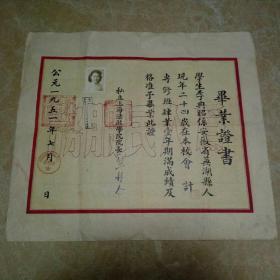 畢業證書
學生李興昭係安徽省蕪湖縣人
現年二十四歲在本校會計
專修班肄業壹年期滿成績及
格准予畢業此證
私立上海法政學院院長
公元一九五一年七月 日